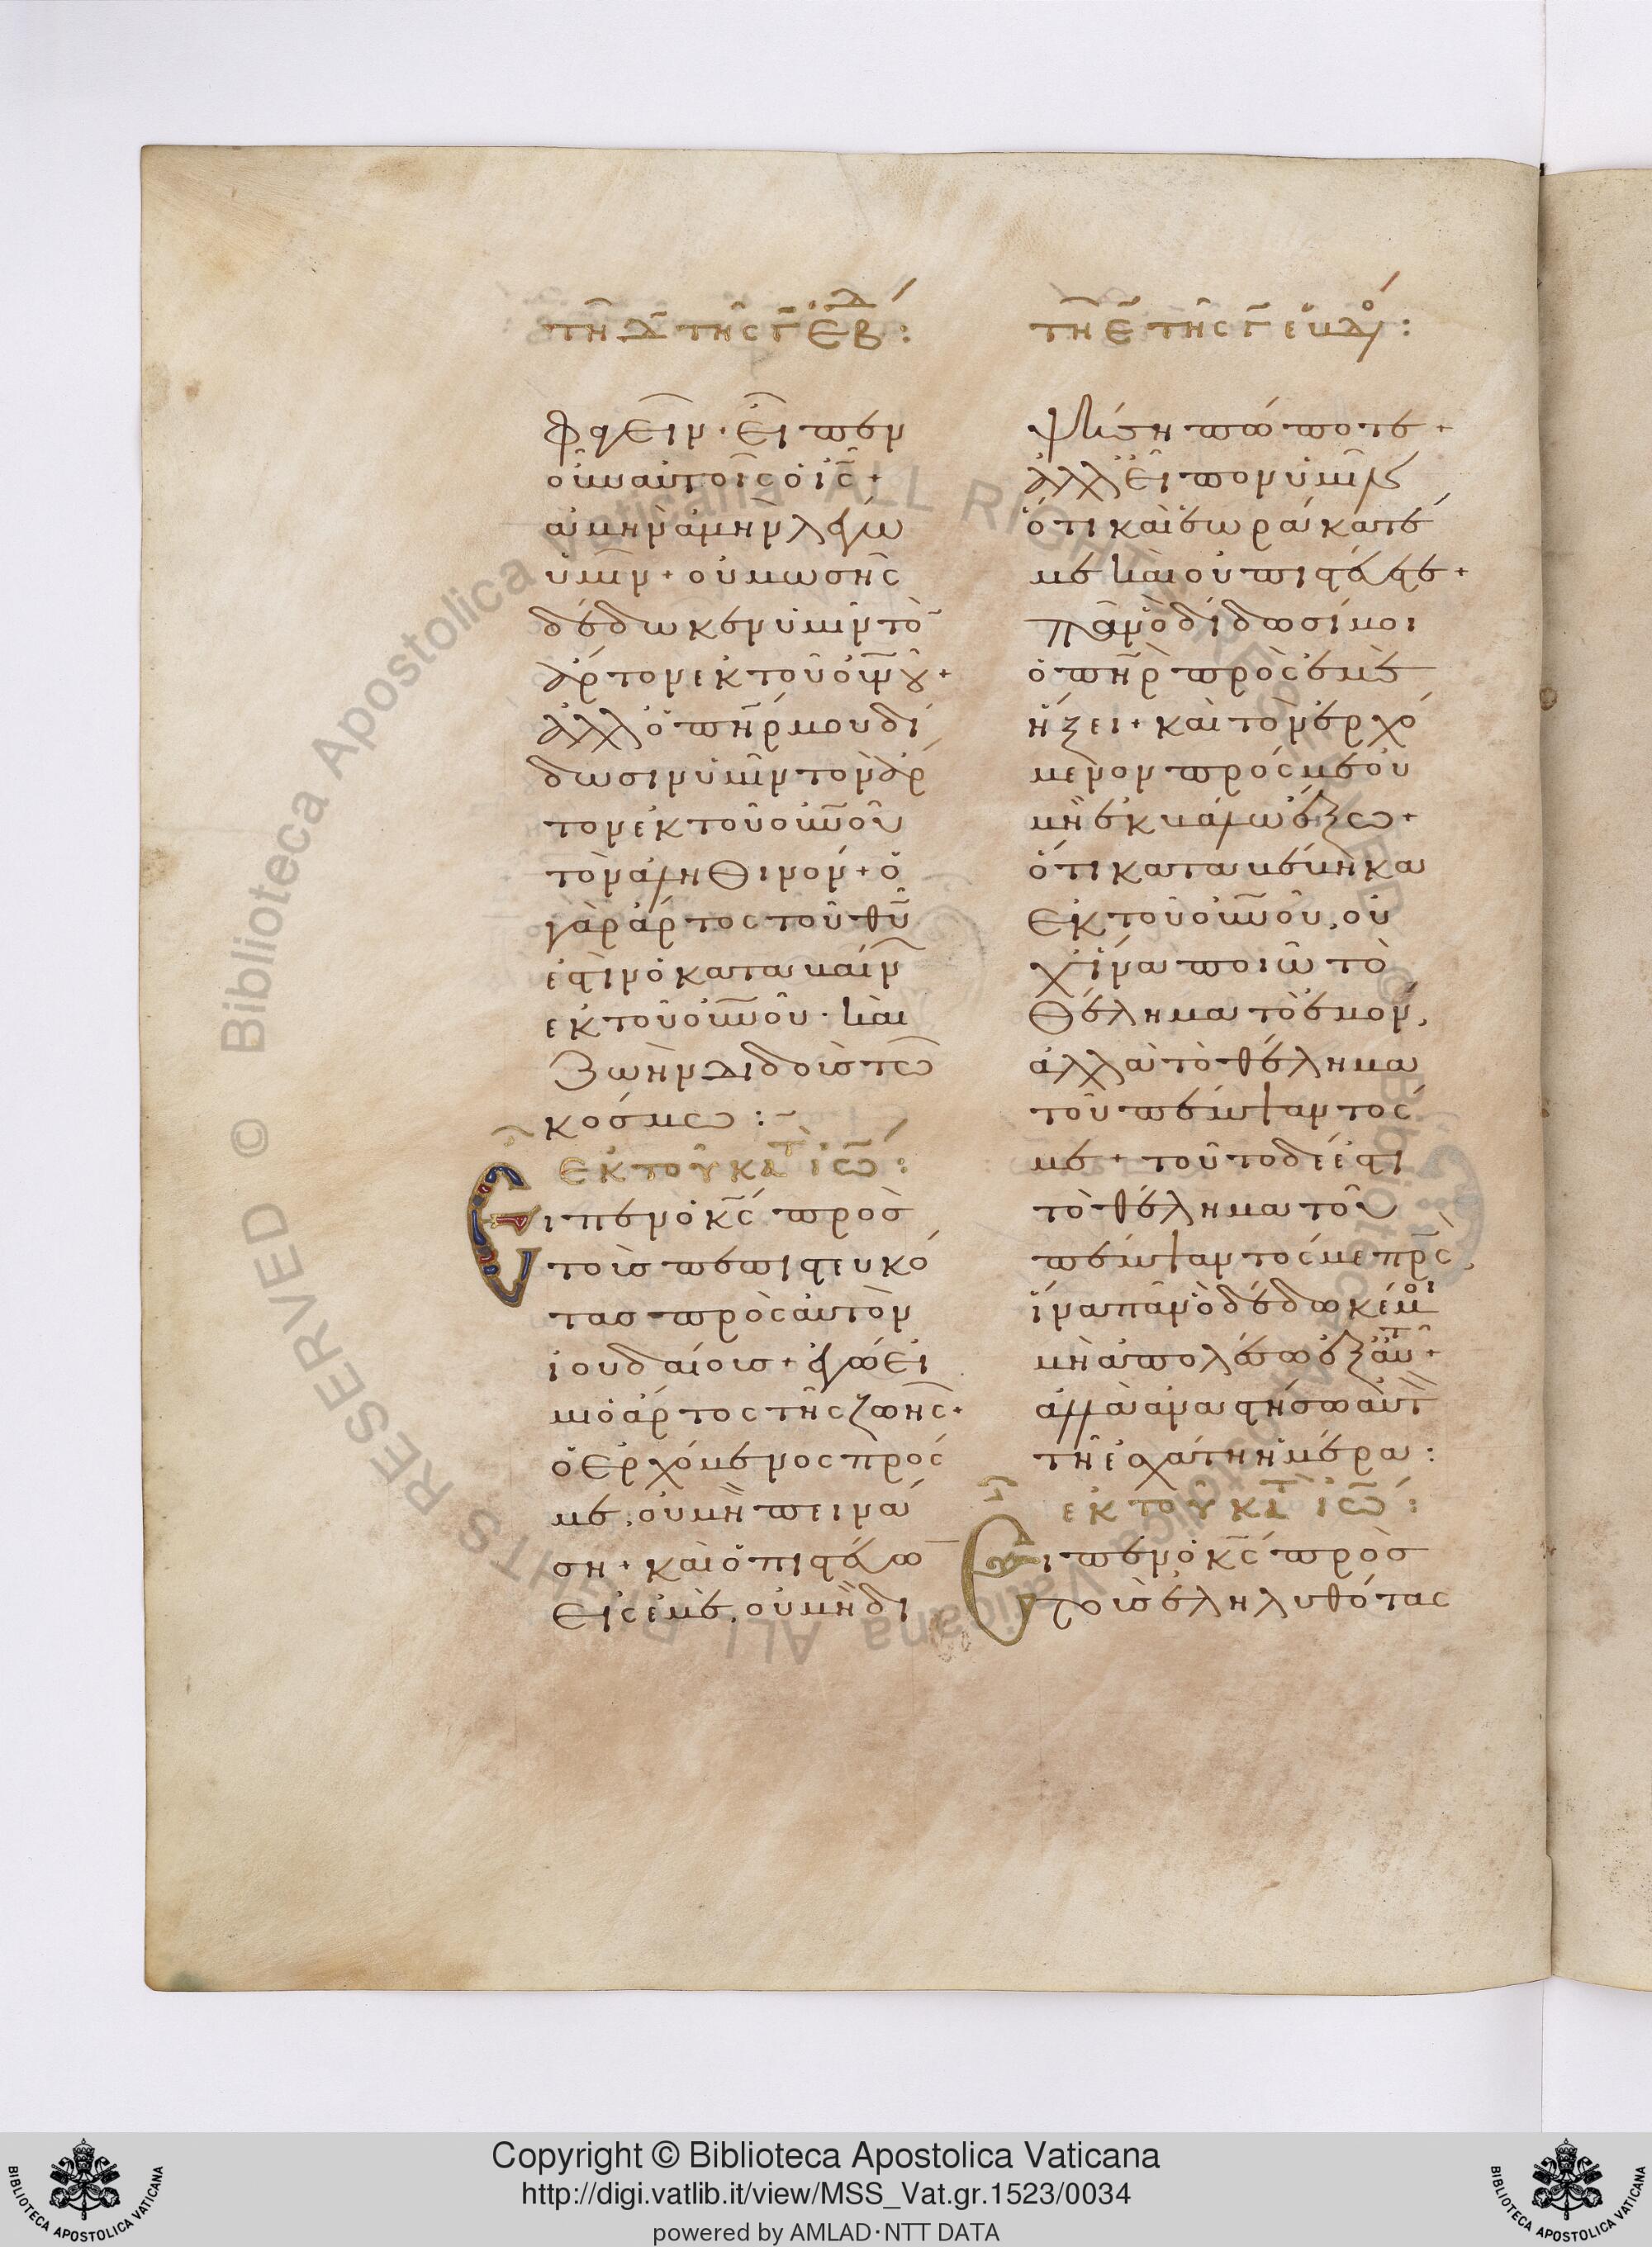 τῆ δ τῆς γ ἑβδ :
φαγεῖν · εἶπεν
οὖν αὐτοῖς ὁ ις +
ἀμὴν ἀμὴν λέγω
ὑμῖν + οὐ μωσῆς
δέδωκεν ὑμῖν το
ἄρτον ἐκ τοῦ οὐνου +
ἀλλ' ὁ πηρ μου δί
δωσιν ὑμῖν τὸν ἄρ
τον ἐκ τοῦ οὐνοῦ
τὸν ἀληθινόν + ὁ
γὰρ ἄρτος τοῦ θυ
ἐστὶν ὁ καταβαίν
ἐκ τοῦ οὐνοῦ · καὶ
ζωὴν διδοὺς τῶ
κόσμω :~
ἐκ τοῦ κατ ιω :
Εἶπεν ὁ κς πρὸσ
τοὺς πεπιστευκό
τασ πρὸς αὐτὸν
ἰουδαίους + ἐγώ εἰ
μι ὁ ἄρτος τῆς ζωῆς +
ὁ ἐρχόμενος πρός
με, οὐ μὴ πεινά
ση + καὶ ὁ πιστεύω
εἰς ἐμέ, οὐ μὴ δι
τῆ ε τῆς γ ἑβδο :
ψήση πώποτε +
ἀλλ' εἶπον ὑμῖν
ὅτι καὶ ἑωράκατέ
με καὶ οὐ πιστεύετε +
πᾶν ὃ δίδωσί μοι
ὁ πηρ πρὸς ἐμὲ
ἥξει + καὶ τὸν ἐρχό
μενον πρός με οὐ
μὴ ἐκβάλω ἔξω +
ὅτι καταβέβηκα
ἐκ τοῦ οὐνοῦ, οὐ
χ ἵνα ποιῶ τὸ
θέλημα τὸ ἐμόν,
ἀλλὰ τὸ θέλημα
τοῦ πέμψαντός
με + τοῦτο δέ ἐστι
τὸ θέλημα τοῦ
πέμψαντός με πρς,
ἵνα πᾶν ὃ δέδωκέ μοι
μὴ ἀπολέσω ἐξ αὐτ +
ἀλλὰ ἀναστήσω αὐτ
τῆ ἐσχάτη ἡμέρα :
ἐκ τοῦ κατ ιω :
Εἶπεν ὁ κς πρὸσ
τοὺς ἐληλυθότας
© Biblioteca Apostolica Vaticana ALL RIGHTS RESERVED
Copyright © Biblioteca Apostolica Vaticana
http://digi.vatlib.it/view/MSS_Vat.gr.1523/0034
powered by AMLAD·NTT DATA
BIBLIOTECA APOSTOLICA VATICANA
BIBLIOTECA APOSTOLICA VATICANA